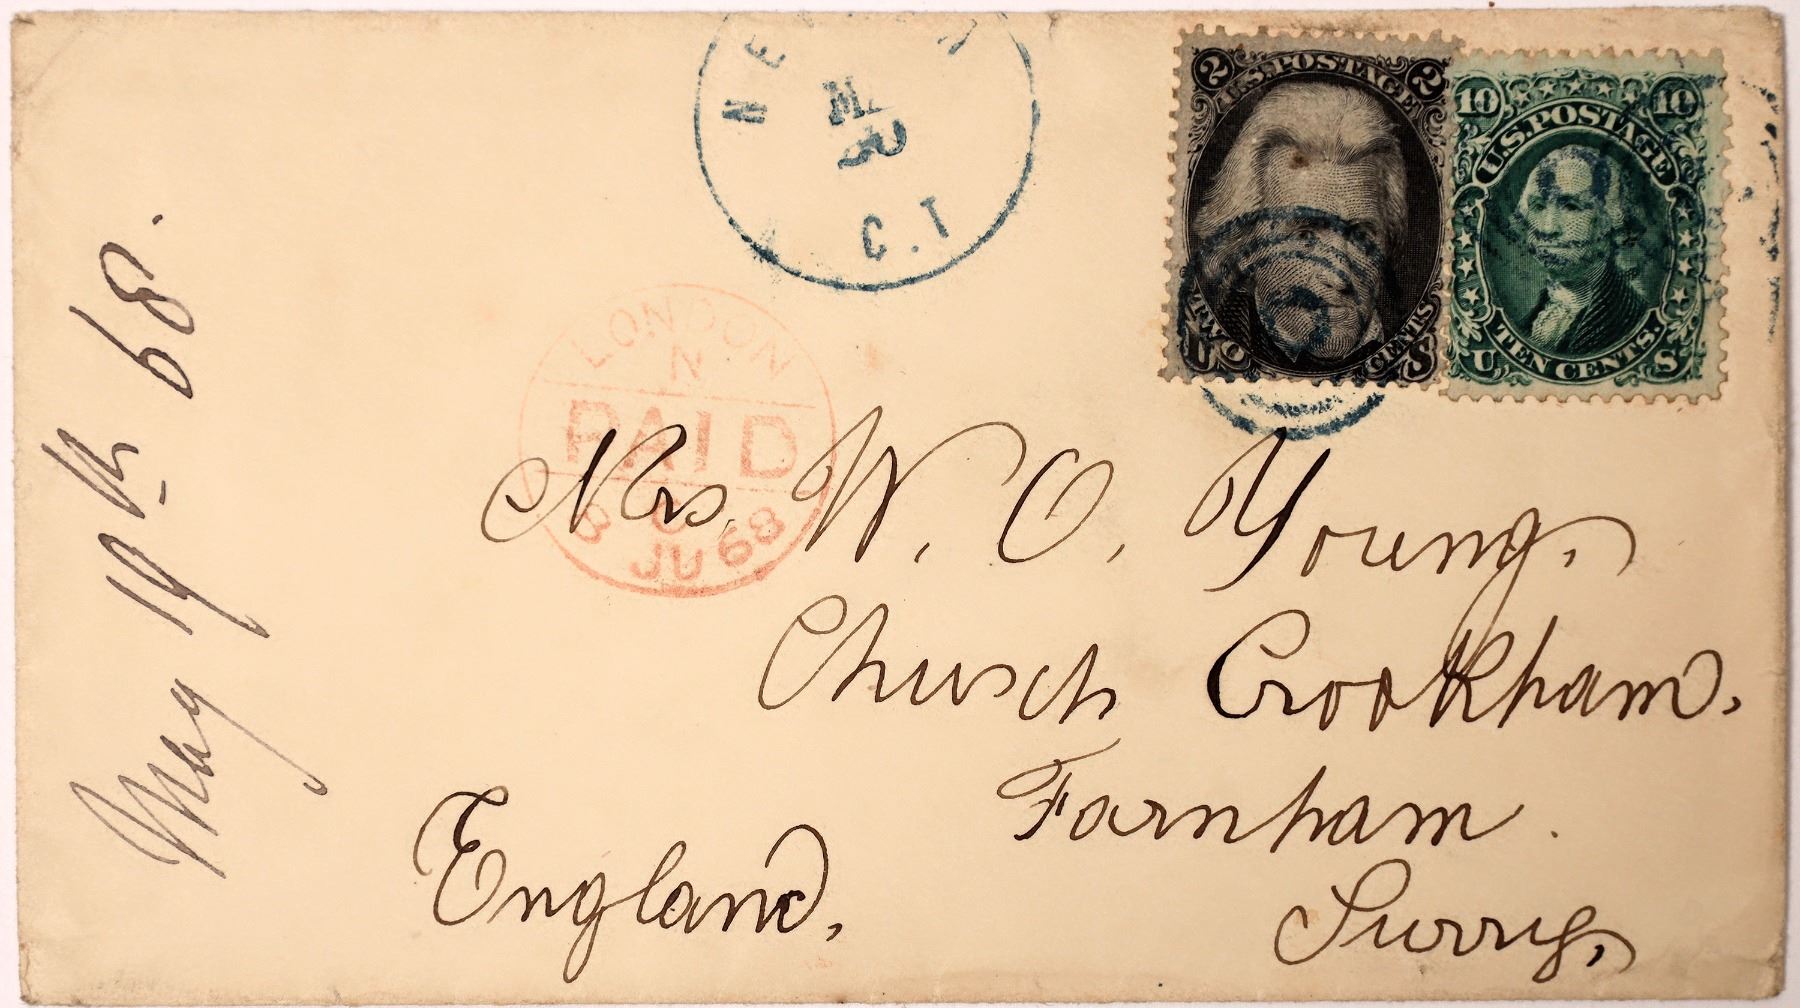 May 19th 68.
C.T
2 U.S. POSTAGE 2
TWO CENTS
U S
10 10
U.S. POSTAGE
TEN CENTS.
U S
LONDON
N
PAID
JU 68
Mrs. W. O. Young.
Church Crookham.
Farnham.
Surry,
England.